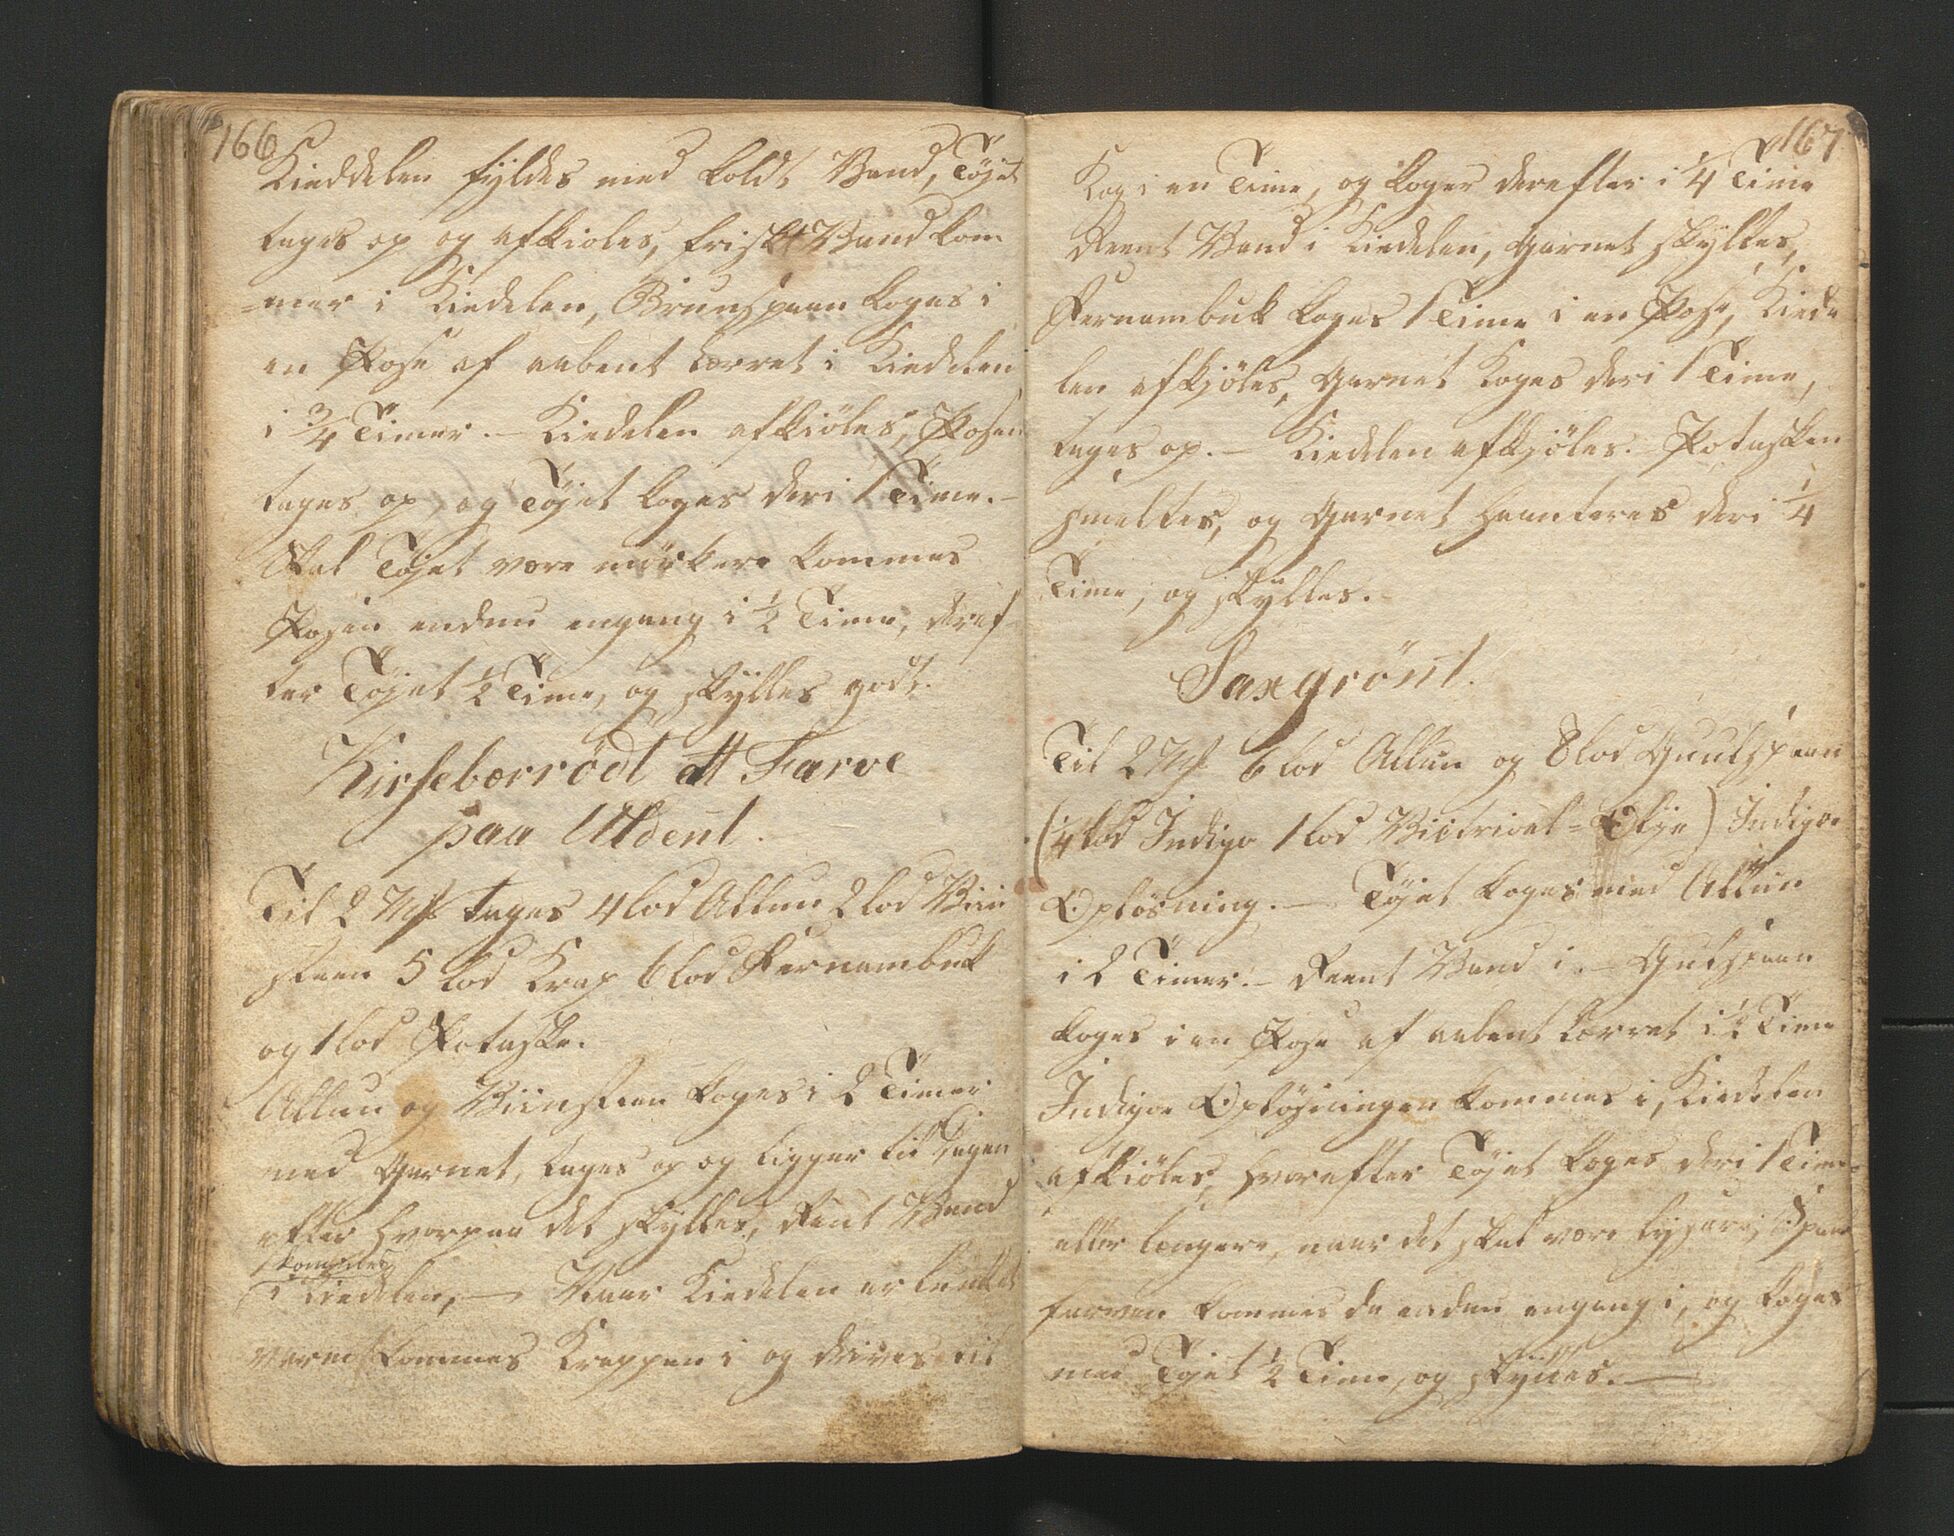 166
Kieddelen fyldes med koldt Vand, Tøjet
tages op og afkioles, friskt Vand kom
=mer i Kiedelen, Brunspaan koges i
en Pose af aabent Lærret i Kiedelen
i 3/4 Timer. – Kiedelen afkiøles, Posen
tages op, og Tøjet koges deri 1 Time. –
Skal Tøjet være mørkere kommes
Posen endnu engang i 1/2 Time, deref
ter Tøjet 1/2 Time, og skylles godt.
Kirsebærrødt at Farve
paa Uldent.
Til 2 Mk tages 4 lod Allun 2 lod Viin
steen 5 lod Krap 6 lod Fernambuk
og 1 lod Potaske.
Allun og Viinsteen koges i 2 Timer
med Garnet, tages op og ligger til Dagen
efter hvorpaa det skylles, Rent Vand
kommes
i Kiedelen, – Naar Kiedelen er lunket
varm kommes Krappen i og drives til
167
Kog i en Time, og koger derefter i 1/4 Time
Reent Vand i Kiedelen, Garnet skylles,
Fernambuk koges 1 Time i en Pose, Kiede
len afkjøles, Garnet koges deri 1 Time,
tages op. – Kiedelen afkjøles. – Potasken
smeltes, og Garnet haanteres deri 1/4
Time, og skylles.
Saxgrønt.
Til 2 Mk 6 lod Allun og 8 lod Guulspaan
(1/4 lod Indigo 1 lod Viitrioel=Olje) Indigoe
Opløsning. – Tøjet koges med Allun
i 2 Timer. – Reent Vand i. – Gulspaan
koges i en Pose af aabent Lærret i 1/2 Time
Indigoe Opløsningen kommes i, Kiedelen
afkiøles, hvorefter Tøjet koges deri 1 Time
eller længere, naar det skal være lysere, Span
farven kommes da endnu engang i, og koges
med Tøjet 1/2 Time, og skylles. –